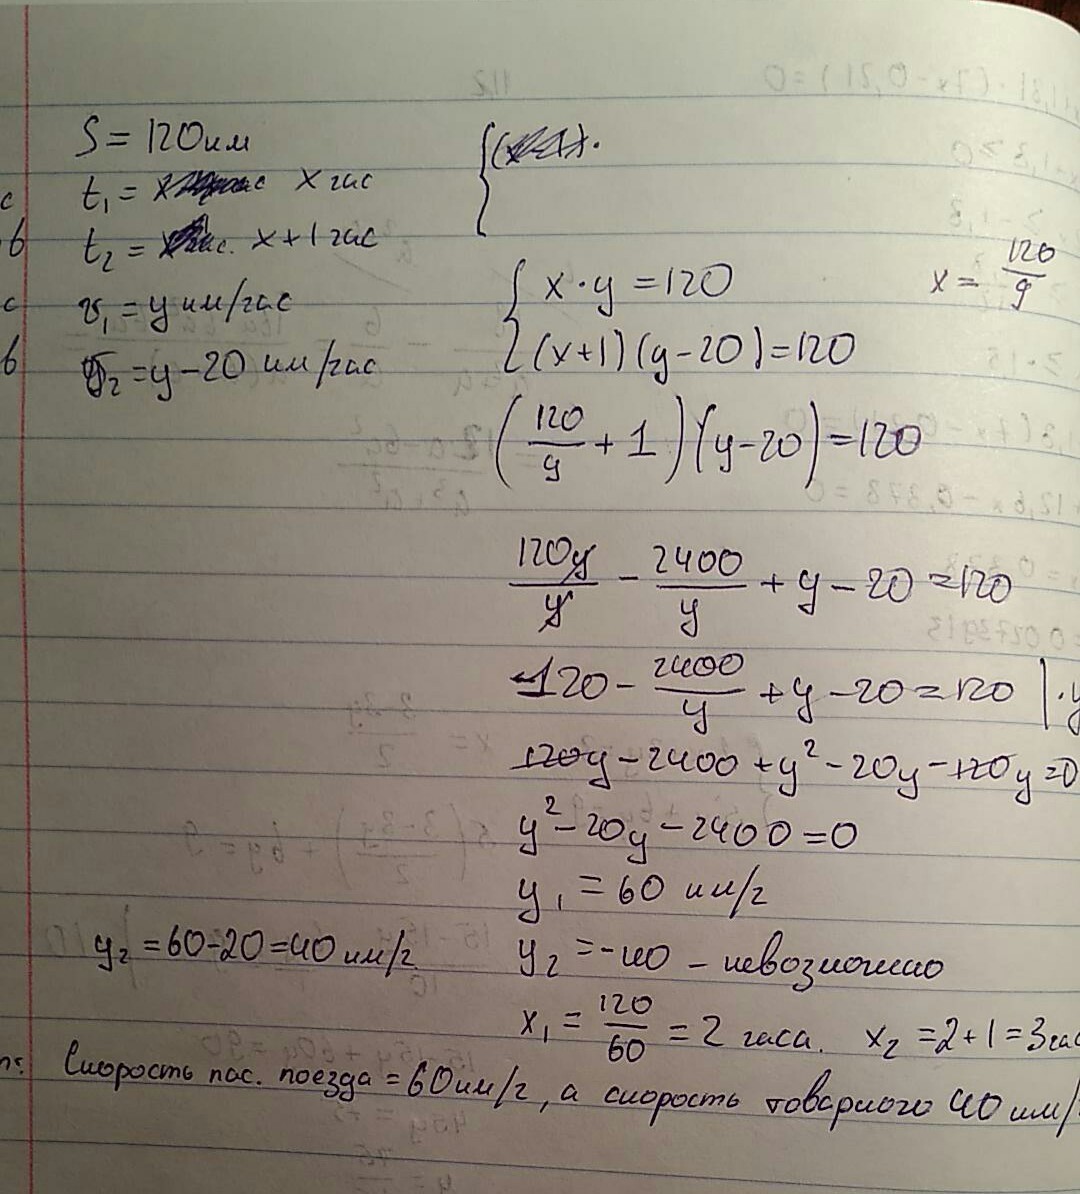 S = 120 км
t₁ = x час
t₂ = x + 1 час
v₁ = y км/час
v₂ = y - 20 км/час
{ x · y = 120
(x+1)(y-20) = 120
x = 120/y
(120/y + 1)(y-20) = 120
120y/y - 2400/y + y - 20 = 120
120 - 2400/y + y - 20 = 120 | · y
120y - 2400 + y² - 20y - 120y = 0
y² - 20y - 2400 = 0
y₁ = 60 км/г
y₂ = -40 - невозможно
y₂ = 60-20 = 40 км/г
x₁ = 120/60 = 2 часа. x₂ = 2+1 = 3 час
Скорость пас. поезда = 60 км/г, а скорость товарного 40 км/